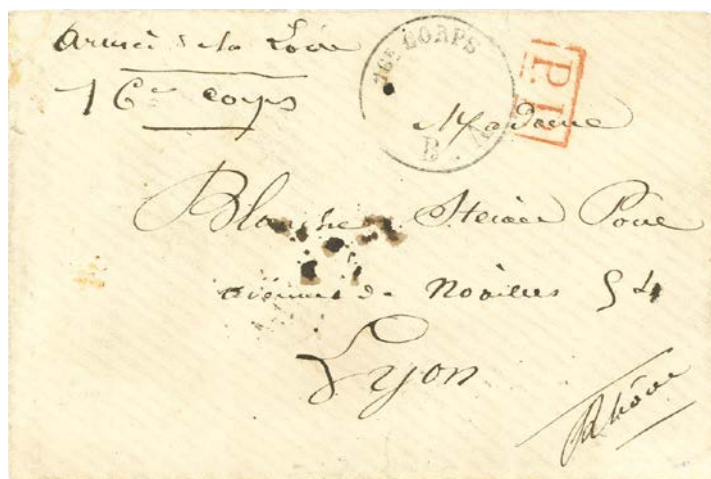 Armée de la Loire
16e corps
16E CORPS
B
P.P.
Madame
Blanche Père
avenue de Noailles 54
Lyon
Rhône